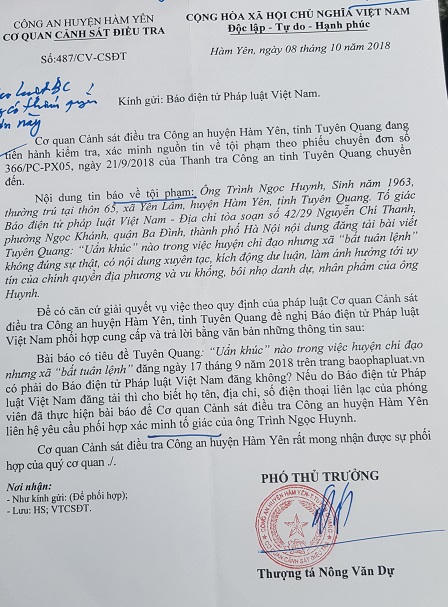 CÔNG AN HUYỆN HÀM YÊN
CƠ QUAN CẢNH SÁT ĐIỀU TRA
Số:487/CV-CSĐT
CỘNG HÒA XÃ HỘI CHỦ NGHĨA VIỆT NAM
Độc lập - Tự do - Hạnh phúc
Hàm Yên, ngày 08 tháng 10 năm 2018
có thẩm quyền
này
Kính gửi: Báo điện tử Pháp luật Việt Nam.
Cơ quan Cảnh sát điều tra Công an huyện Hàm Yên, tỉnh Tuyên Quang đang
tiến hành kiểm tra, xác minh nguồn tin về tội phạm theo phiếu chuyển đơn số
366/PC-PX05, ngày 21/9/2018 của Thanh tra Công an tỉnh Tuyên Quang chuyển
đến.
Nội dung tin báo về tội phạm: Ông Trình Ngọc Huynh, Sinh năm 1963,
thường trú tại thôn 65, xã Yên Lâm, huyện Hàm Yên, tỉnh Tuyên Quang. Tố giác
Báo điện tử pháp luật Việt Nam - Địa chỉ tòa soạn số 42/29 Nguyễn Chí Thanh,
phường Ngọc Khánh, quận Ba Đình, thành phố Hà Nội nội dung đăng tải bài viết
Tuyên Quang: “Uẩn khúc” nào trong việc huyện chỉ đạo nhưng xã “bất tuân lệnh”
không đúng sự thật, có nội dung xuyên tạc, kích động dư luận, làm ảnh hưởng tới uy
tín của chính quyền địa phương và vu khống, bôi nhọ danh dự, nhân phẩm của ông
Huynh.
Để có căn cứ giải quyết vụ việc theo quy định của pháp luật Cơ quan Cảnh sát
điều tra Công an huyện Hàm Yên, tỉnh Tuyên Quang đề nghị Báo điện tử Pháp luật
Việt Nam phối hợp cung cấp và trả lời bằng văn bản những thông tin sau:
Bài báo có tiêu đề Tuyên Quang: “Uẩn khúc” nào trong việc huyện chỉ đạo
nhưng xã “bất tuân lệnh” đăng ngày 17 tháng 9 năm 2018 trên trang baophapluat.vn
có phải do Báo điện tử Pháp luật Việt Nam đăng không? Nếu do Báo điện tử Pháp
luật Việt Nam đăng tải thì cho biết họ tên, địa chỉ, số điện thoại liên lạc của phóng
viên đã thực hiện bài báo để Cơ quan Cảnh sát điều tra Công an huyện Hàm Yên
liên hệ yêu cầu phối hợp xác minh tố giác của ông Trình Ngọc Huynh.
Cơ quan Cảnh sát điều tra Công an huyện Hàm Yên rất mong nhận được sự phối
hợp của quý cơ quan ./.
Nơi nhận:
- Như kính gửi: (Để phối hợp);
- Lưu: HS; VTCSĐT.
PHÓ THỦ TRƯỞNG
Thượng tá Nông Văn Dự